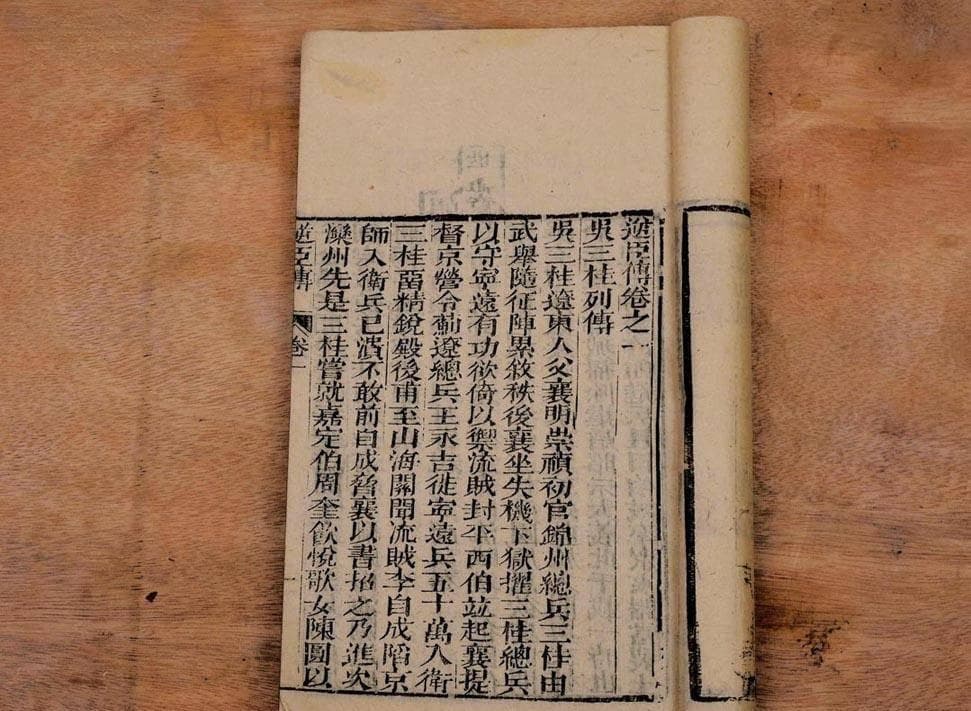 逆臣傳卷之一
吳三桂列傳
吳三桂遼東人父襄明崇禎初官錦州總兵三桂由
武舉隨征陣累敘秩後襄坐失機下獄擢三桂總兵
以守寧遠有功欲倚以禦流賊封平西伯竝起襄提
督京營令薊遼總兵王永吉徙寧遠兵五十萬入衛
三桂畱精銳殿後甫至山海關聞流賊李自成陷京
師入衛兵已潰不敢前自成脅襄以書招之乃進次
灤州先是三桂嘗就嘉定伯周奎飲悅歌女陳圓以
逆臣傳 卷一